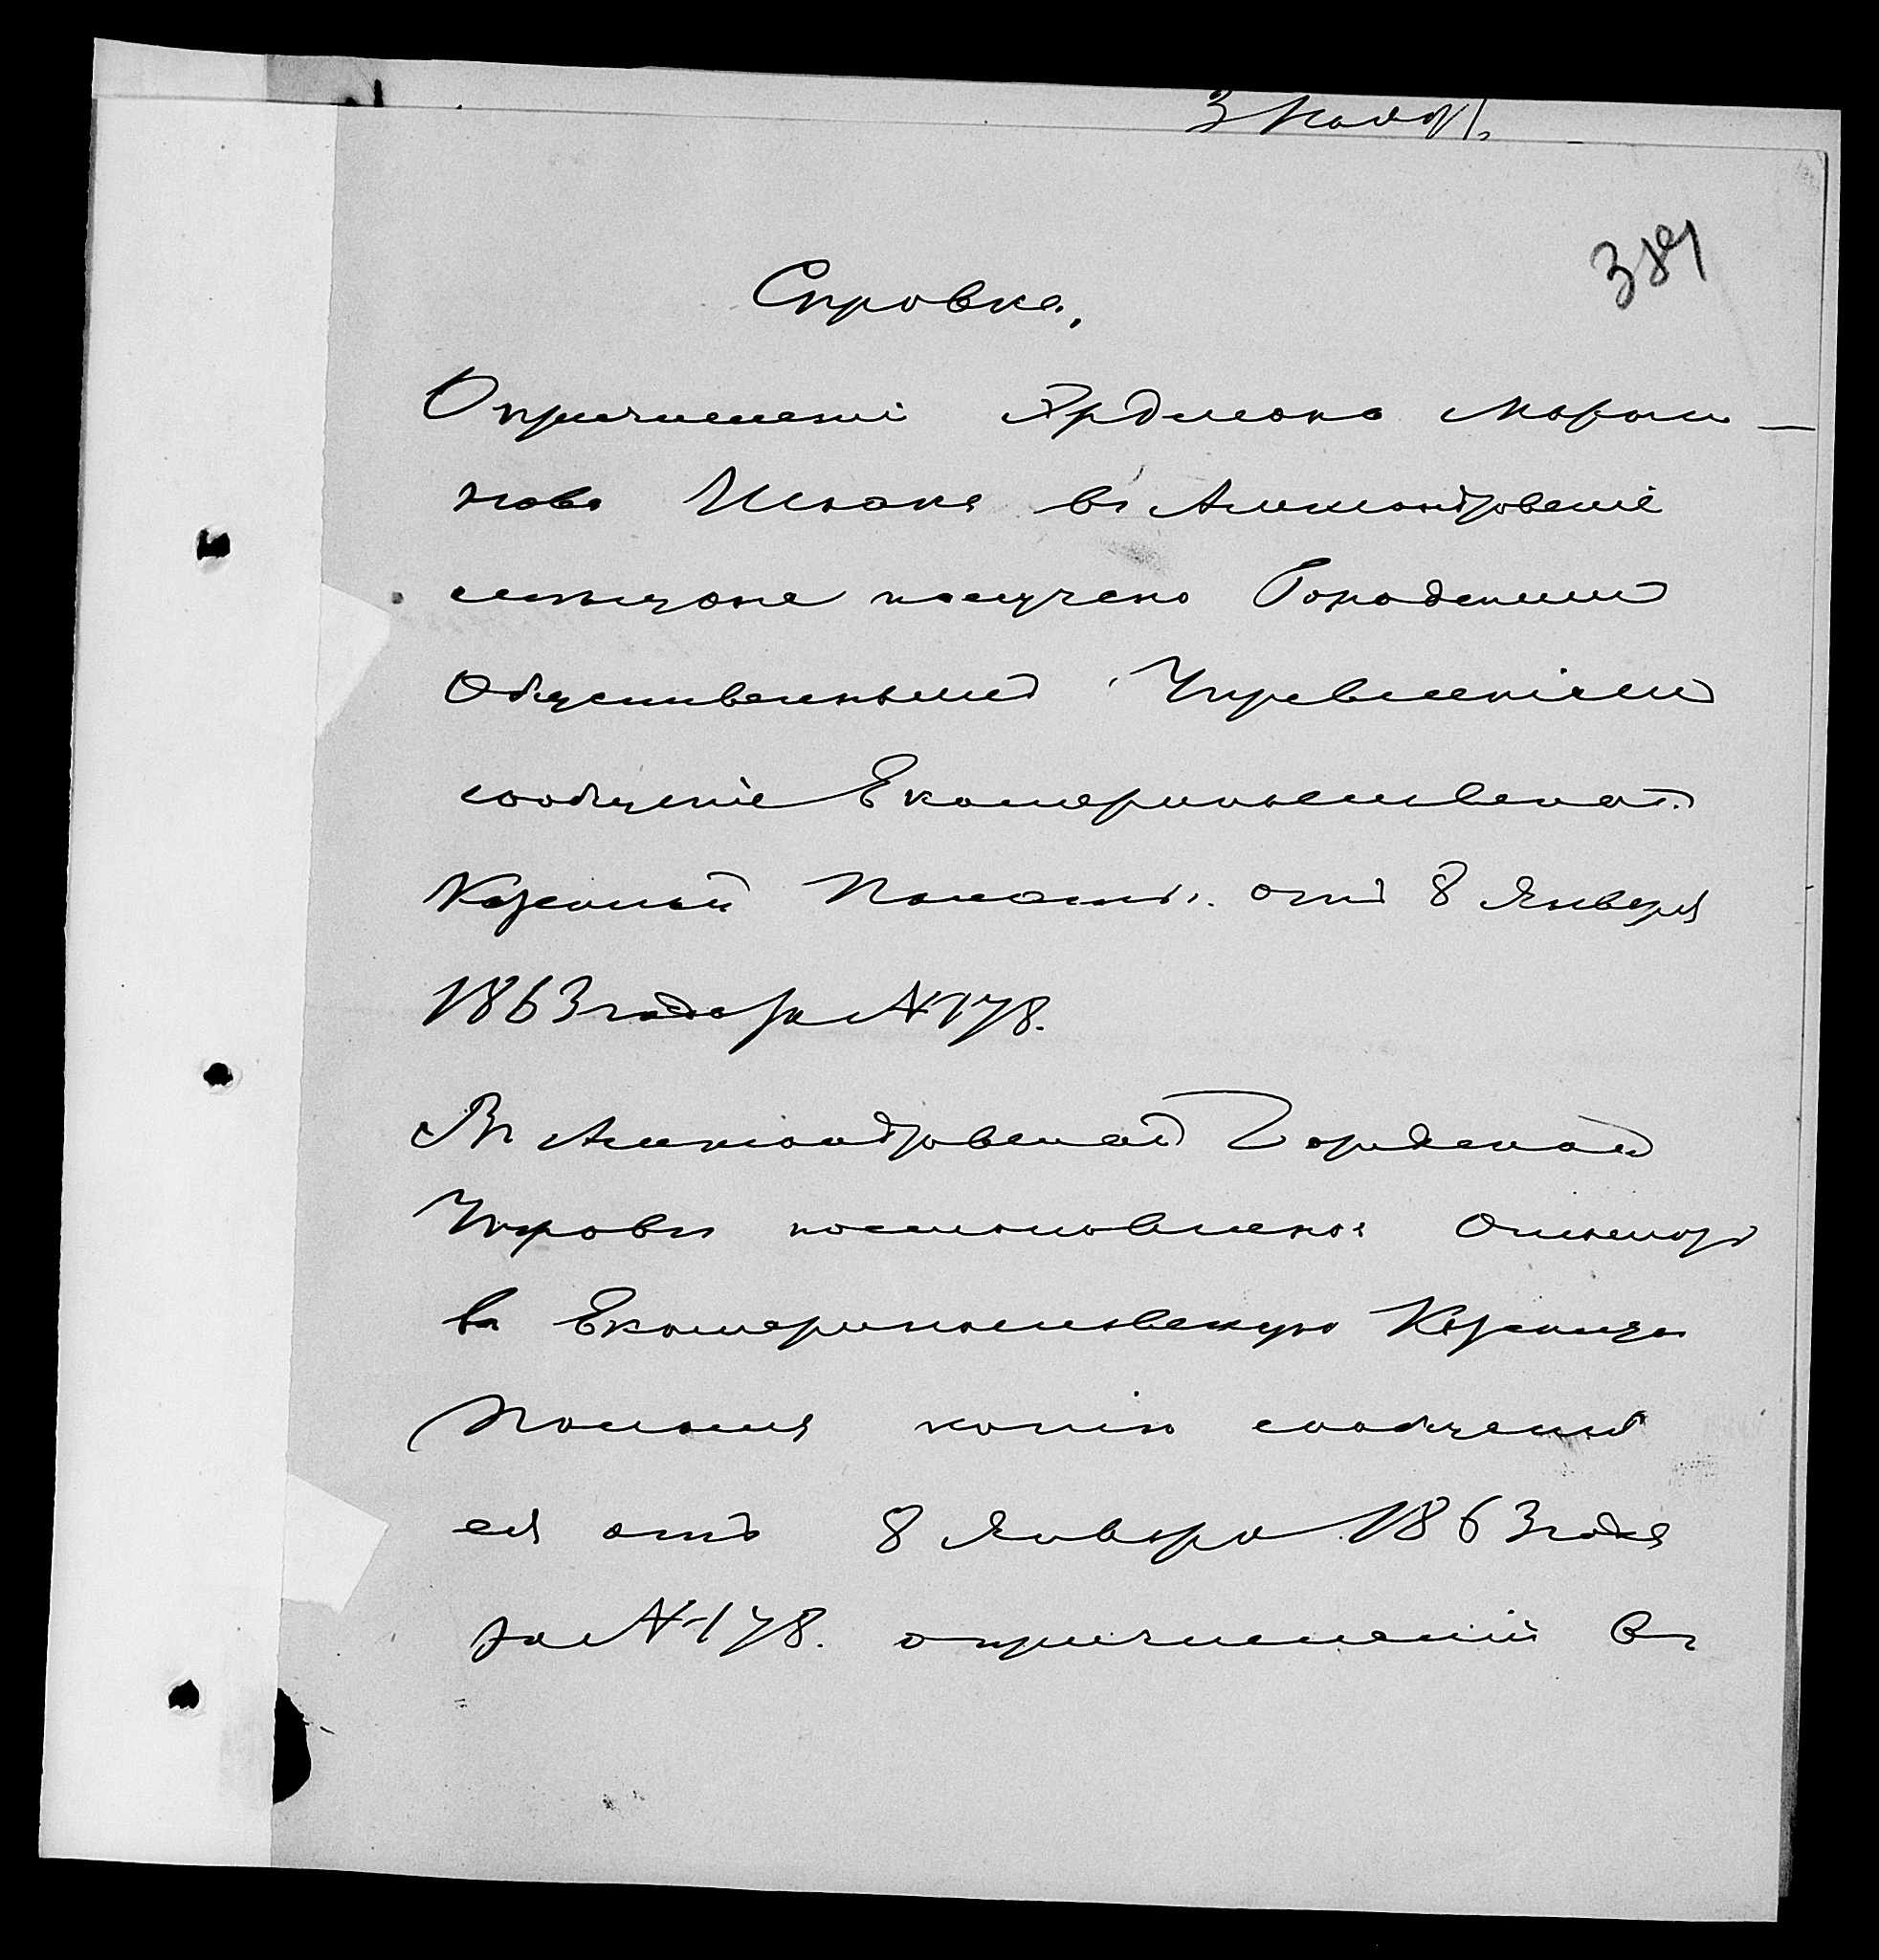 389
Справка.
О причислении Ардалiона Марты—
нова Шпака въ Александровскiе
мѣщане получено Городскимъ
Общественнымъ Управленiемъ
сообщенiе Екатеринославской
Казенной Палаты отъ 8 Января
1863 года за № 178.
Въ Александровской Городской
Управѣ постановлено:
въ Екатеринославскую Казенную
Палату копiю сообщенiя
ея отъ 8 Января 1863 года
за № 178. о причисленiи въ